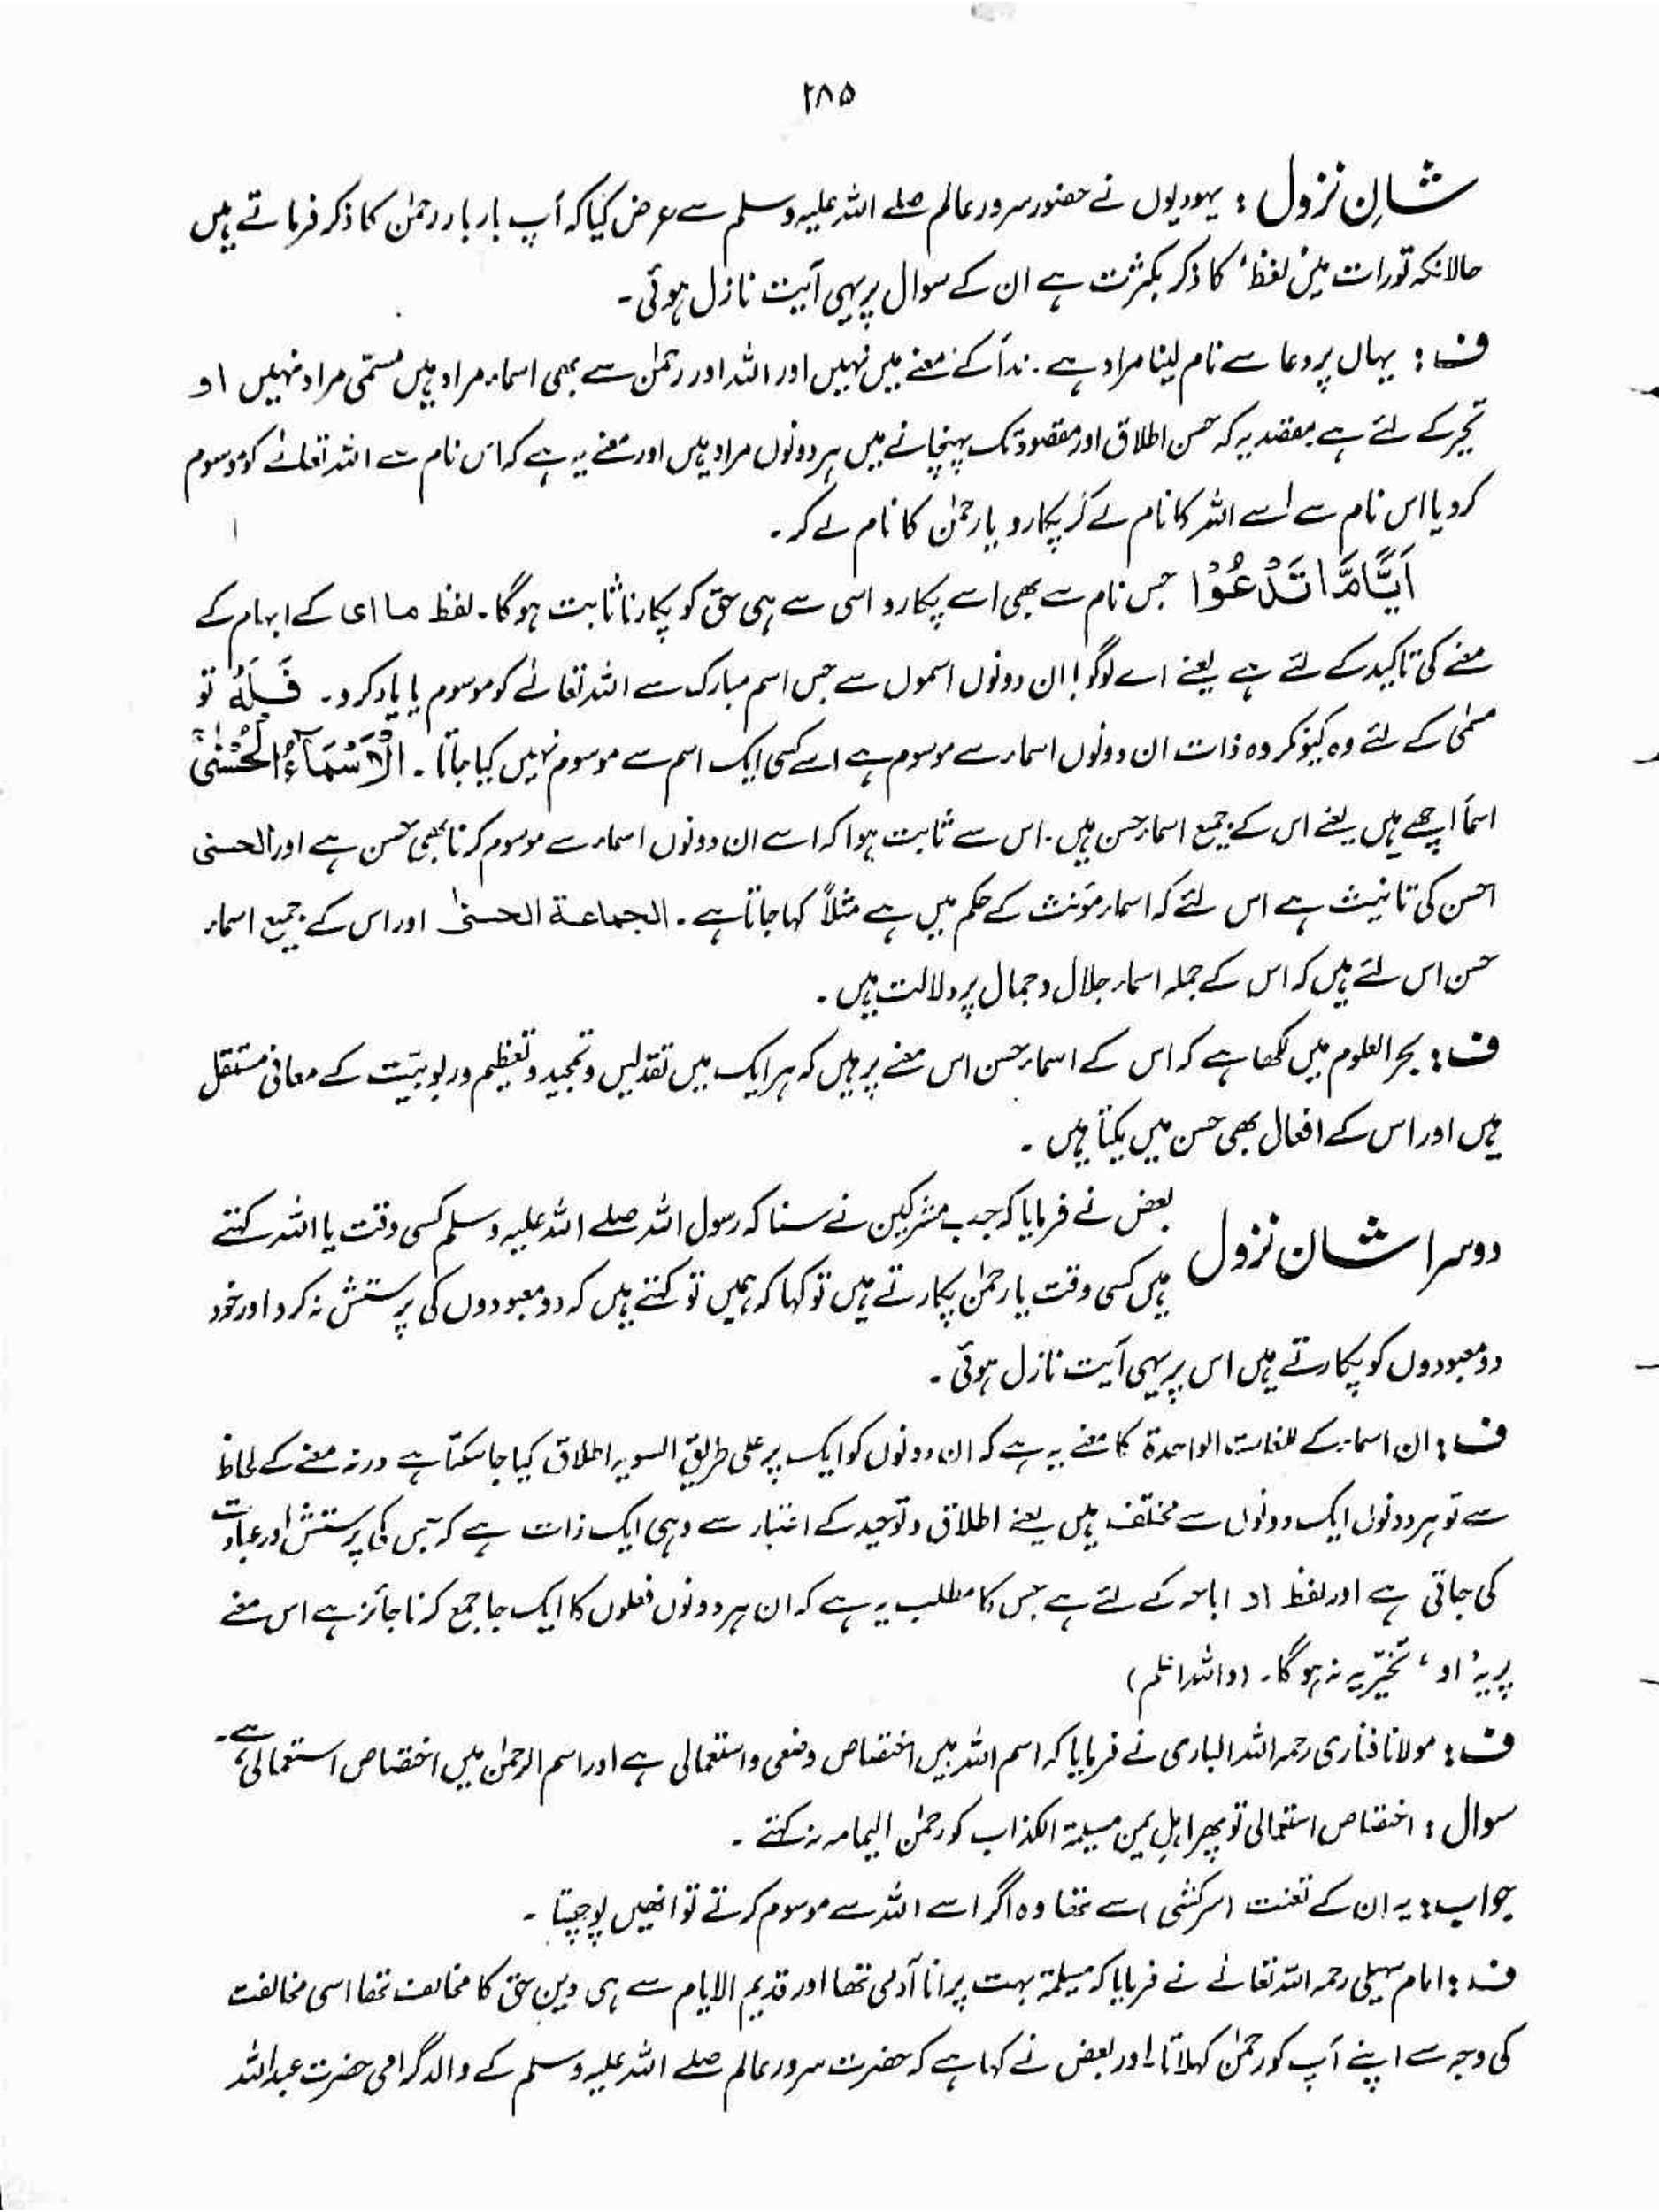 ۲۸۵
شانِ نزول : یہودیوں نے حضور سرور عالم صلے اللہ علیہ وسلم سے عرض کیا کہ آپ بار بار رحمٰن کا ذکر فرماتے ہیں
حالانکہ تورات میں لفظ ' کا ذکر بکثرت ہے ان کے سوال پر یہی آیت نازل ہوئی۔
ف : یہاں پر دعا سے نام لینا مراد ہے ۔ نداً کے معنے میں نہیں اور اللہ اور رحمٰن سے بھی اسماء مراد ہیں مسمّی مراد نہیں او
تخیر کے لئے ہے مقصد یہ کہ حسن اطلاق اور مقصود تک پہنچانے میں ہر دونوں مراد ہیں اور معنے یہ ہے کہ اس نام سے اللہ تعالٰے کو موسوم
کرو یا اس نام سے اسے اللہ کا نام لے کر پکارو یا رحمٰن کا نام لے کر ۔
اَیًّامَّا تَدْعُوْا جس نام سے بھی اسے پکارو اسی سے ہی حق کو پکارنا ثابت ہوگا۔ لفظ ما ای کے ابہام کے
معنے کی تاکید کے لئے ہے یعنے اے لوگو ! ان دونوں اسموں سے جس اسم مبارک سے اللہ تعالٰے کو موسوم یا یاد کرو ۔ فَلَهُ تو
مسمٰی کے لئے وہ کیونکر وہ ذات ان دونوں اسماء سے موسوم ہے اسے کسی ایک اسم سے موسوم نہیں کیا جاتا ۔ الْاَسْمَآءُ الْحُسْنٰی
اسمأ اچھے ہیں یعنے اس کے جمیع اسماء حسن ہیں ۔ اس سے ثابت ہوا کہ اسے ان دونوں اسماء سے موسوم کرنا بھی حسن ہے اور الحسنی
احسن کی تانیث ہے اس لئے کہ اسماء مؤنث کے حکم میں ہے مثلاً کہا جاتا ہے ۔ الجماعة الحسنیٰ اور اس کے جمیع اسماء
حسن اس لئے ہیں کہ اس کے جملہ اسماء جلال و جمال پر دلالت ہیں ۔
ف : بحر العلوم میں لکھا ہے کہ اس کے اسماء حسن اس معنے پر ہیں کہ ہر ایک میں تقدیس و تمجید و تعظیم و ربوبیّت کے معانی مستقل
ہیں اور اس کے افعال بھی حسن میں یکتا ہیں ۔
دوسرا شان نزول بعض نے فرمایا کہ جب مشرکین نے سنا کہ رسول اللہ صلے اللہ علیہ وسلم کسی وقت یا اللہ کہتے
ہیں کسی وقت یا رحمٰن پکارتے ہیں تو کہا کہ ہمیں تو کہتے ہیں کہ دو معبودوں کی پرستش نہ کرو اور خود
دو معبودوں کو پکارتے ہیں اس پر یہی آیت نازل ہوئی ۔
ف : ان اسماء کے الواحدة کا معنے یہ ہے کہ ان دونوں کو ایک پر علی طریق السویہ اطلاق کیا جا سکتا ہے ورنہ معنے کے لحاظ
سے تو ہر دونوں ایک دونوں سے مختلف ہیں یعنے اطلاق و توحید کے اعتبار سے وہی ایک ذات ہے کہ جس کی پرستش اور عبادت
کی جاتی ہے اور لفظ او اباحہ کے لئے ہے جس کا مطلب یہ ہے کہ ان ہر دونوں فعلوں کا ایک جا جمع کرنا جائز ہے اس معنے
پر یہ 'او ' تخیّریہ نہ ہوگا ۔ (واللہ اعلم)
ف : مولانا فناری رحمہ اللہ الباری نے فرمایا کہ اسم اللہ میں اختصاص وضعی و استعمالی ہے اور اسم الرحمٰن میں اختصاص استعمالی ہے۔
سوال : اختصاص استعمالی تو پھر اہلِ یمن مسیلمة الکذاب کو رحمٰن الیمامہ نہ کہتے ۔
جواب : یہ ان کے تعنت (سرکشی) سے تھا وہ اگر اسے اللہ سے موسوم کرتے تو انھیں پوچھتا ۔
ف : امام سہیلی رحمہ اللہ تعالٰے نے فرمایا کہ مسیلمة بہت پرانا آدمی تھا اور قدیم الایام سے ہی دین حق کا مخالف تھا اسی مخالفت
کی وجہ سے اپنے آپ کو رحمٰن کہلاتا ۔ اور بعض نے کہا ہے کہ حضرت سرور عالم صلے اللہ علیہ وسلم کے والد گرامی حضرت عبداللہ